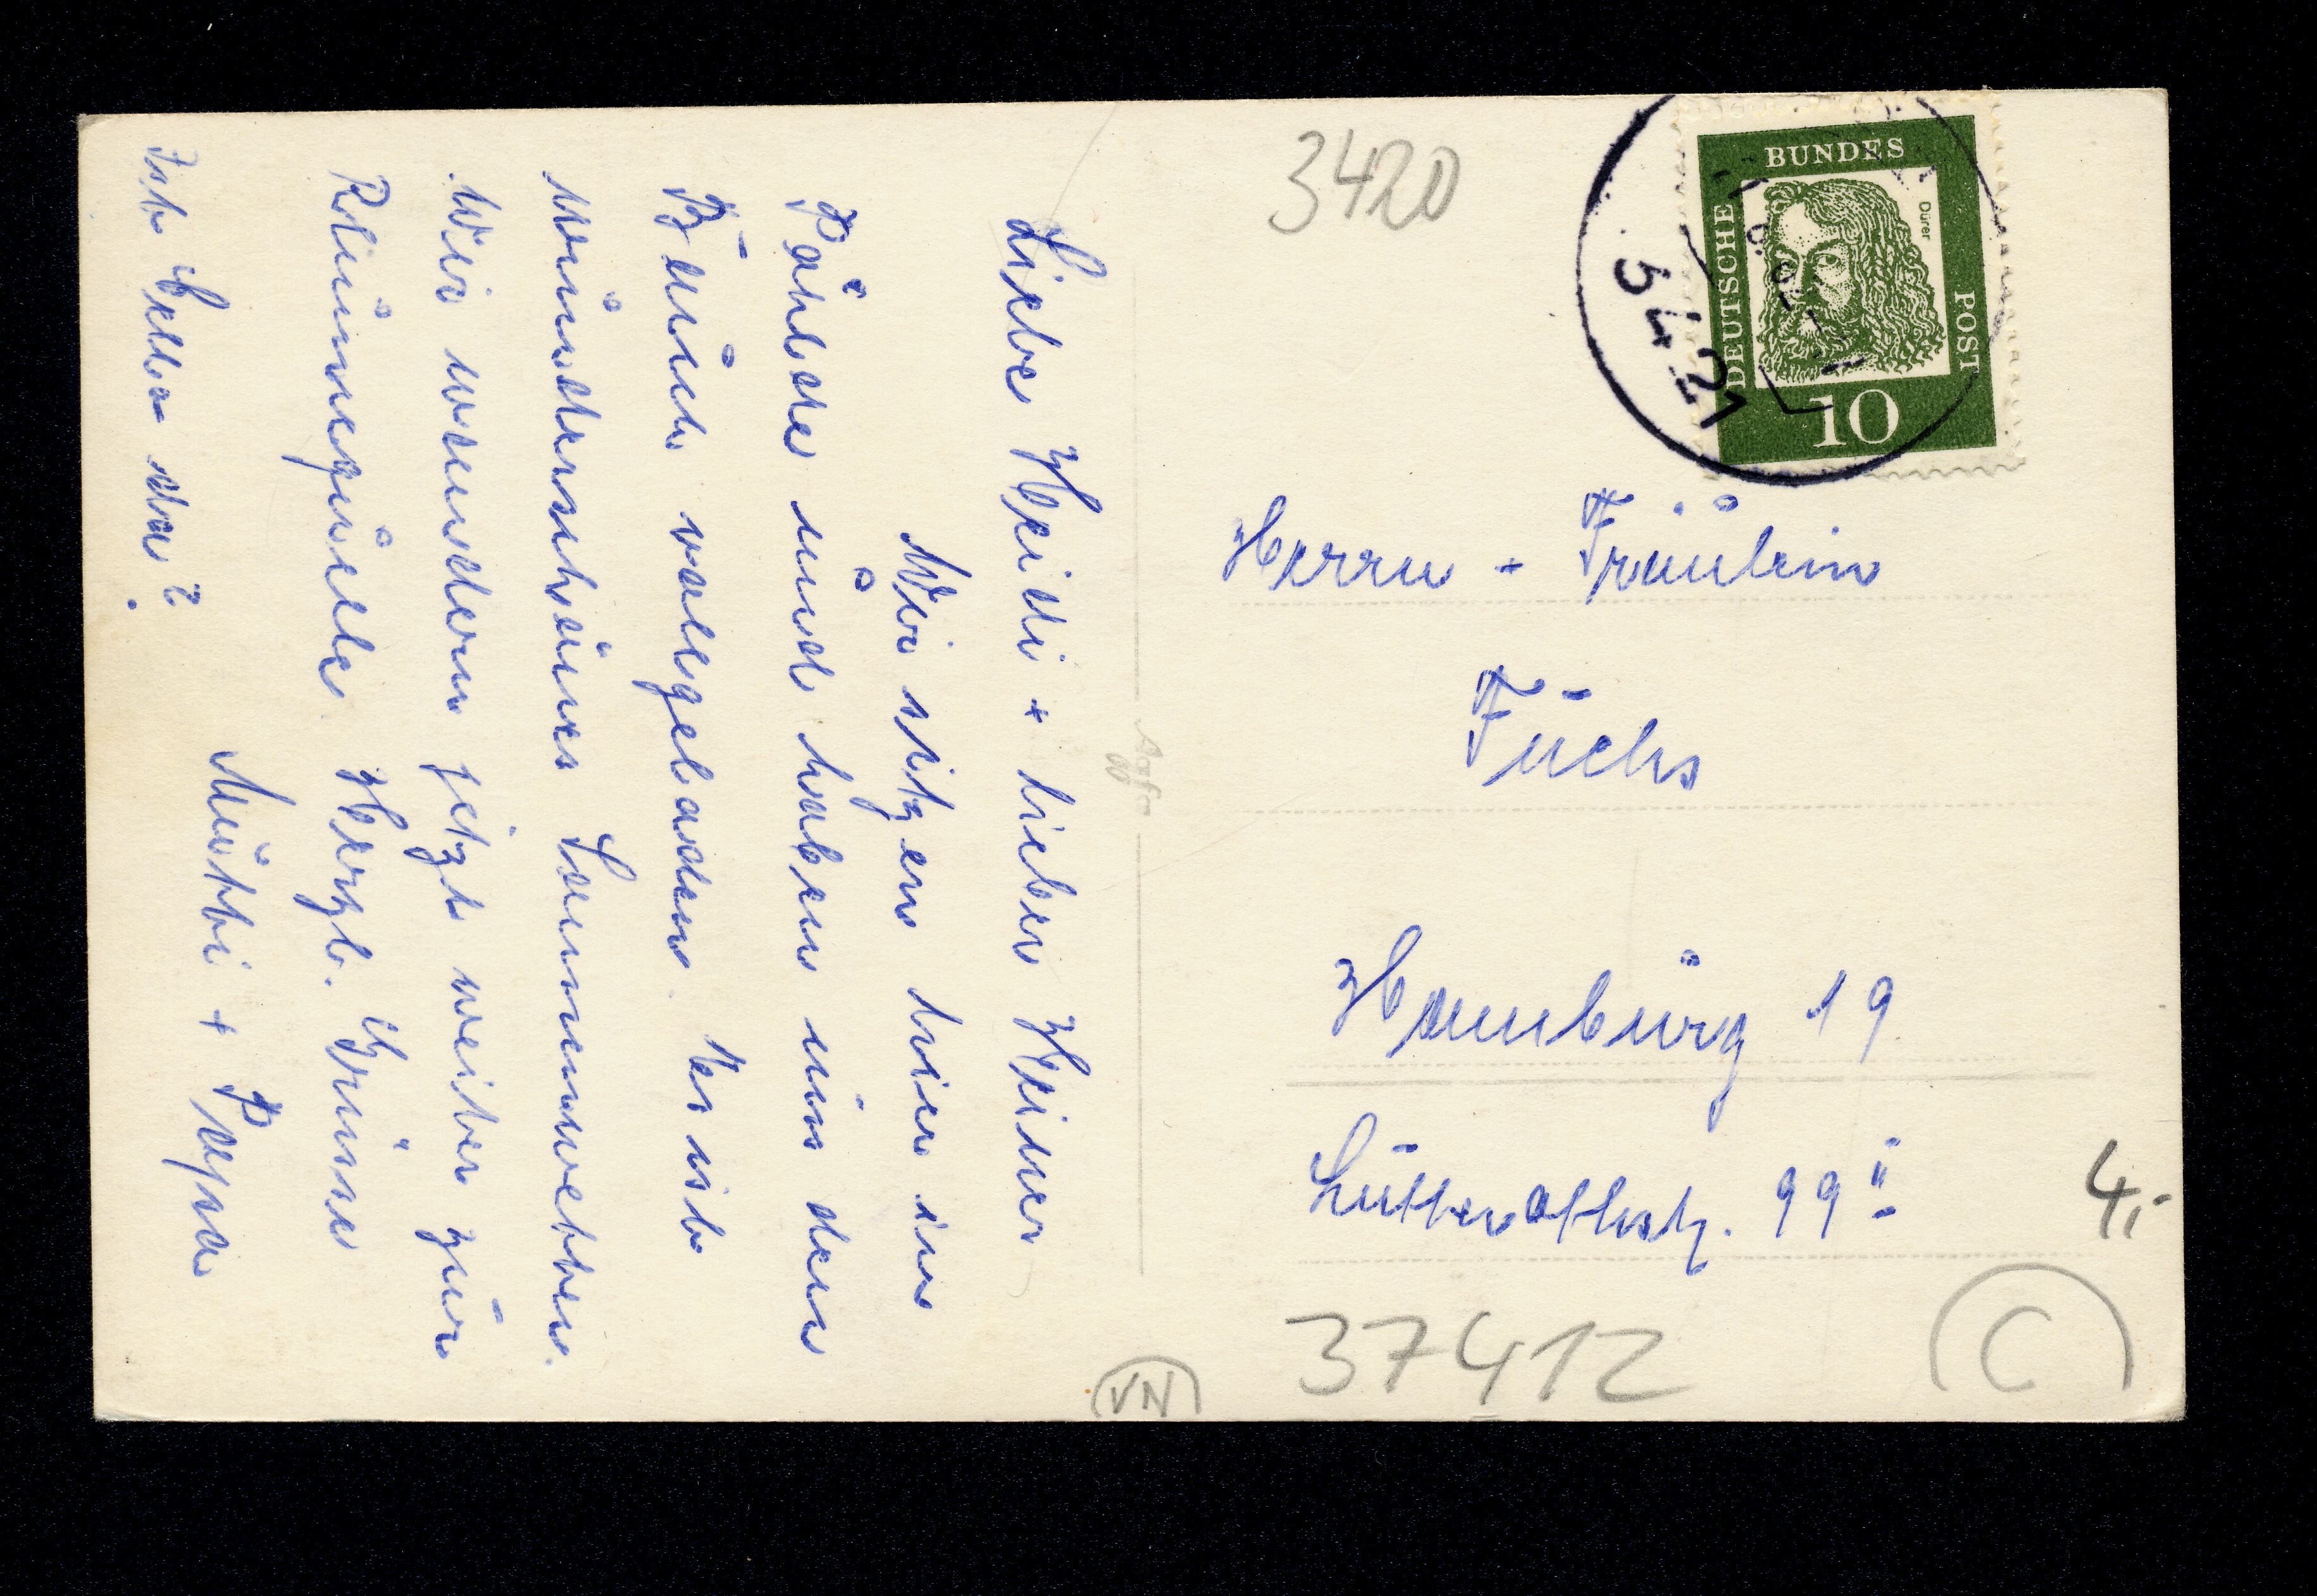 Liebe Heidi + lieber Heiner
Wir sitzen hier in
und haben uns den
Bauch vollgeladen. Es ist
wunderschönes Sonnenwetter.
Wir wandern jetzt weiter zur
Rhumequelle. Herzl. Grüsse
Mutti + Papa
Ist Cella da?
3420
BUNDES
DEUTSCHE
POST
Dürer
10
3421
Herrn + Fräulein
Fuchs
Hamburg 19
Lutterothstr. 99 II
Agfa
4,-
37412
C
VN